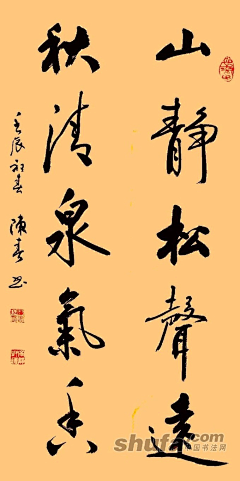 山靜松聲遠
秋清泉氣香
壬辰初春 陳春思
shufa.com
中国书法网